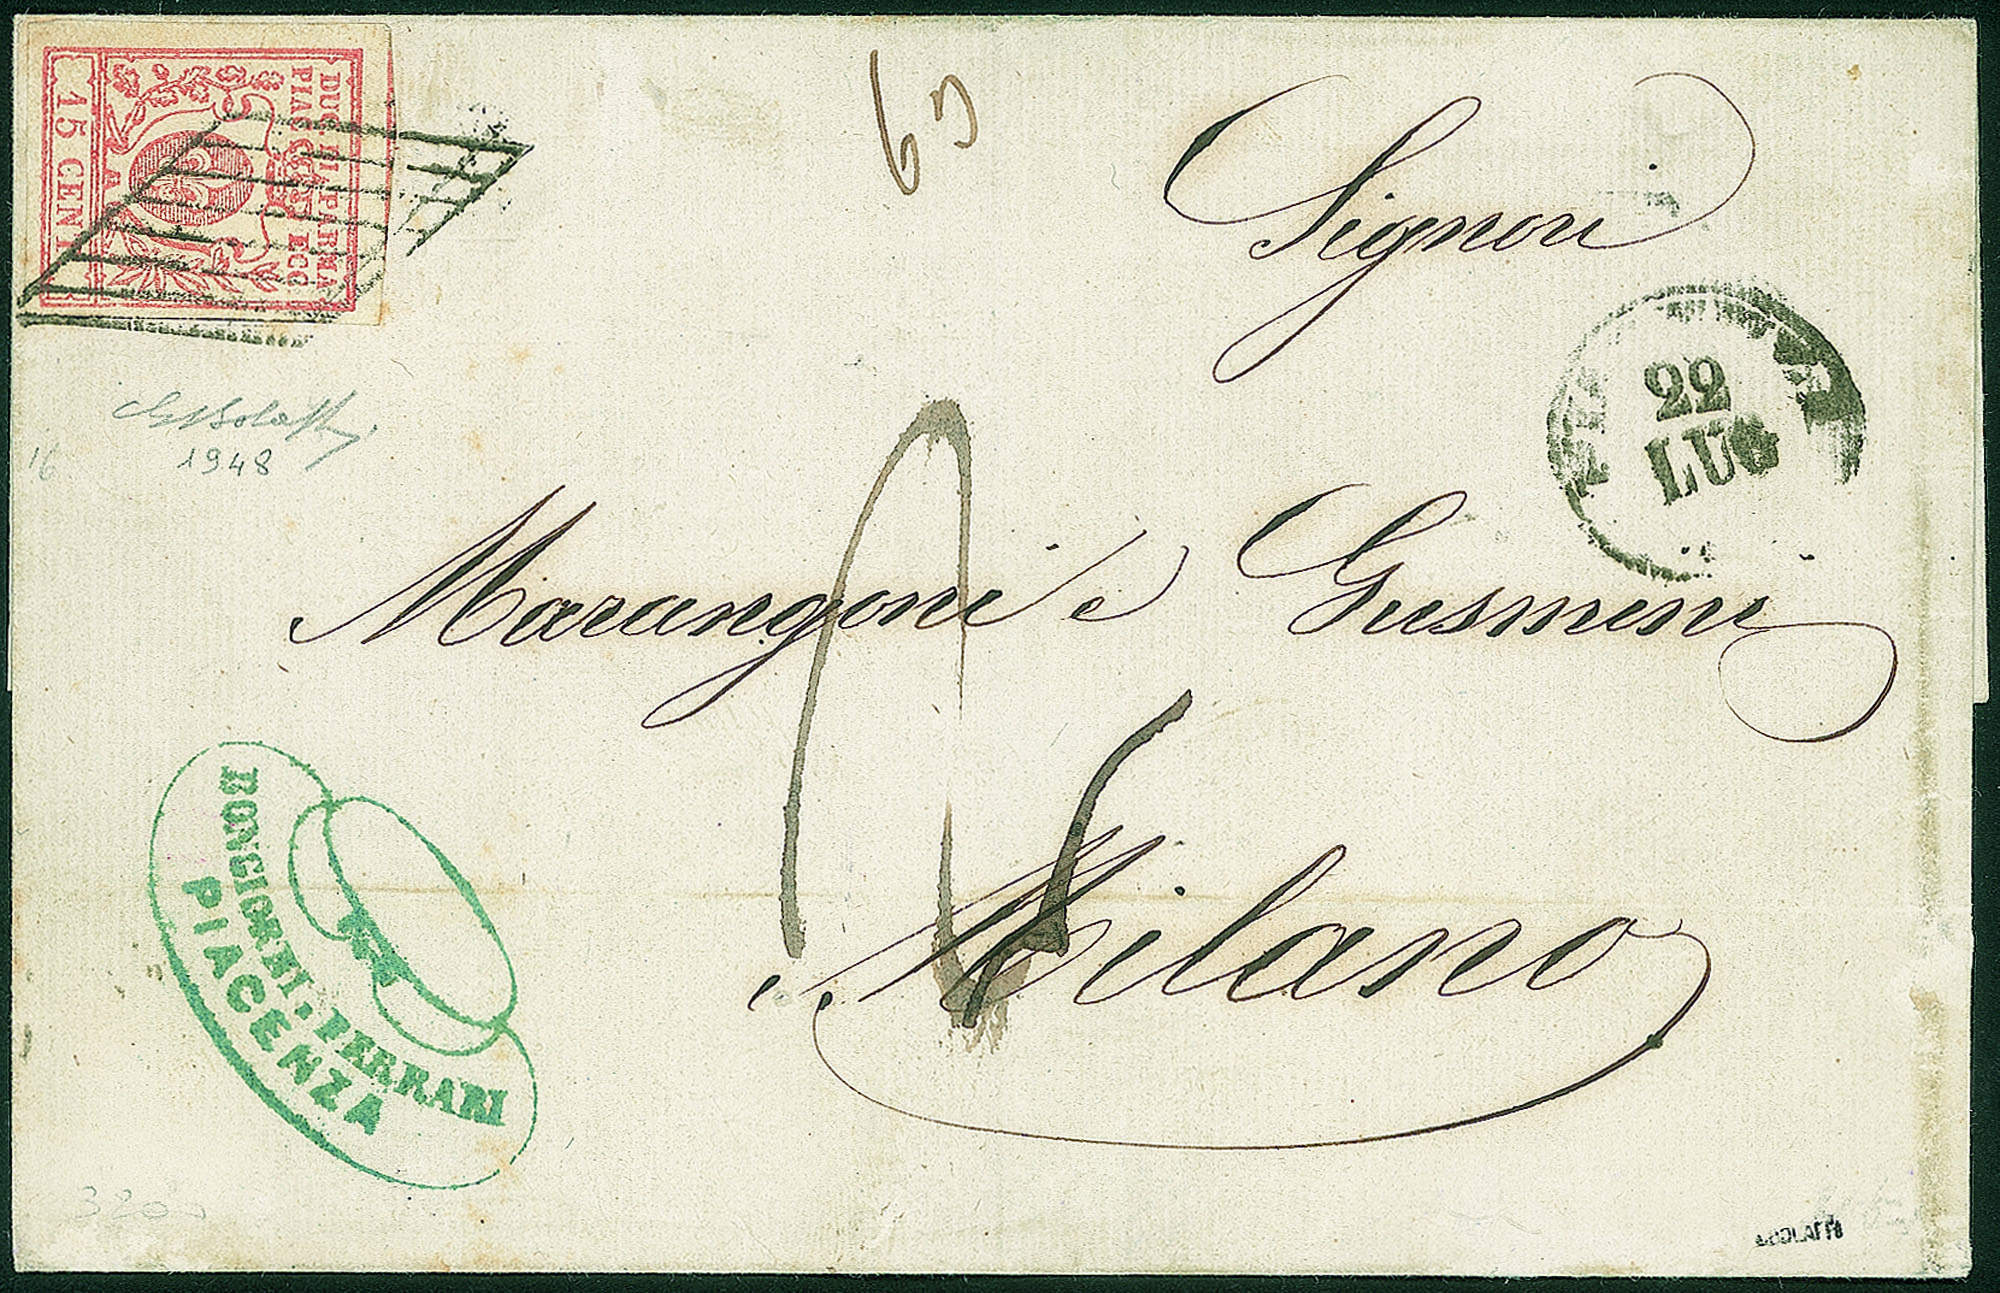 DUC. DI PARMA
PIAC. ECC. ECC
15 CENT
63
Signori
22
LUG
1948
16
Marangoni e Gusmini
Milano
BONGIORNI, FERRARI
PIACENZA
320